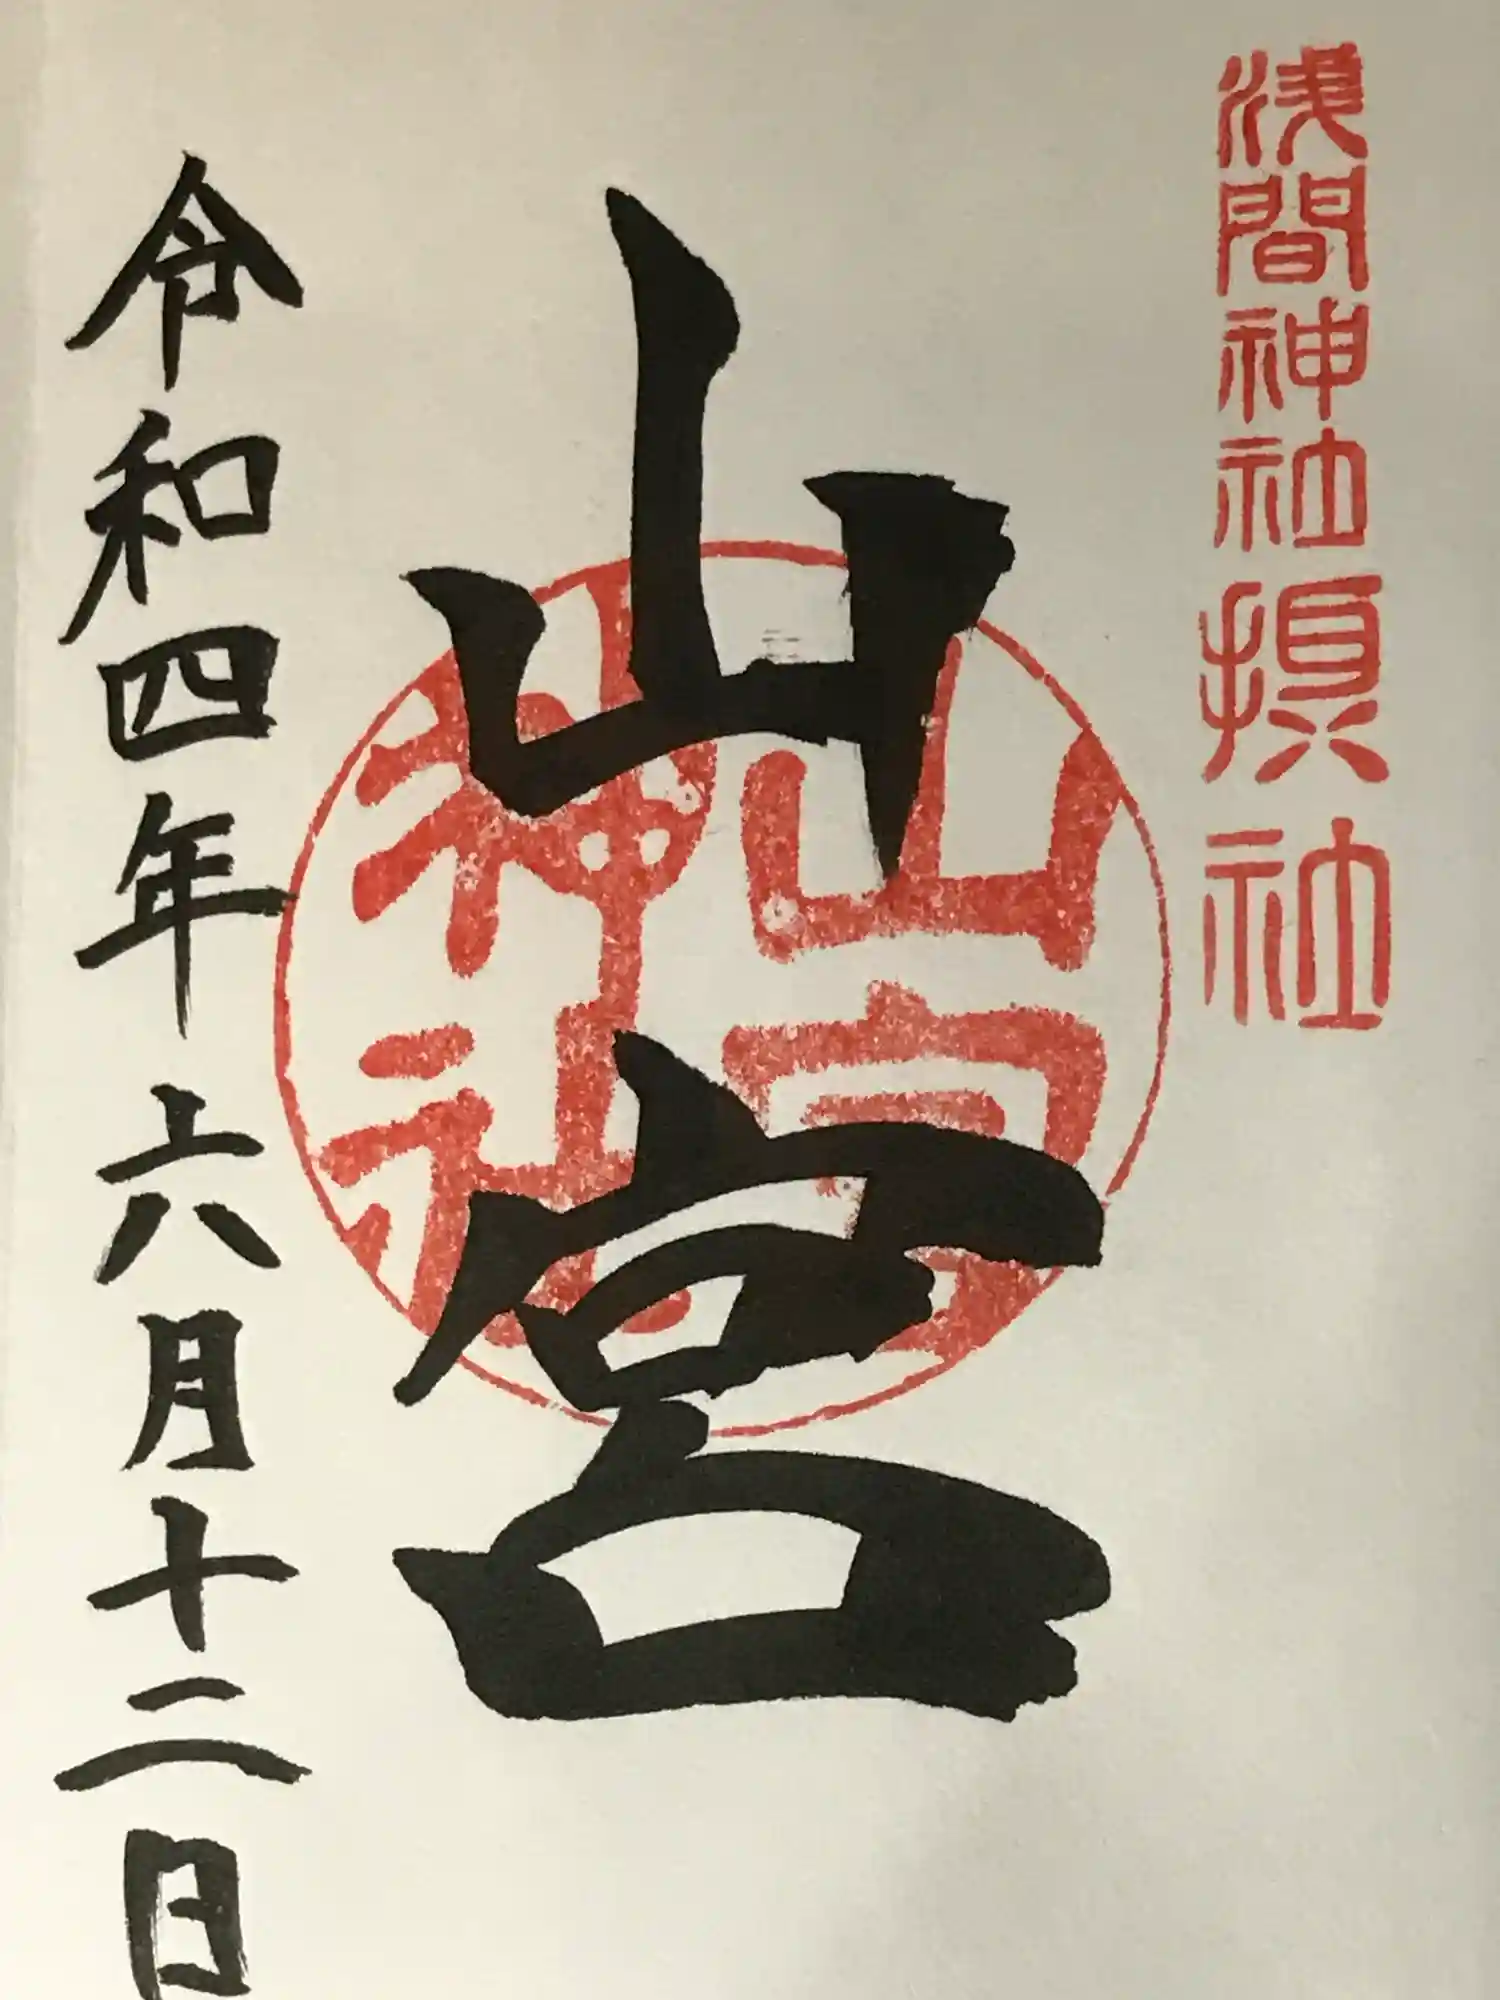 浅間神社摂社
山宮
山宮神社
令和四年六月十二日